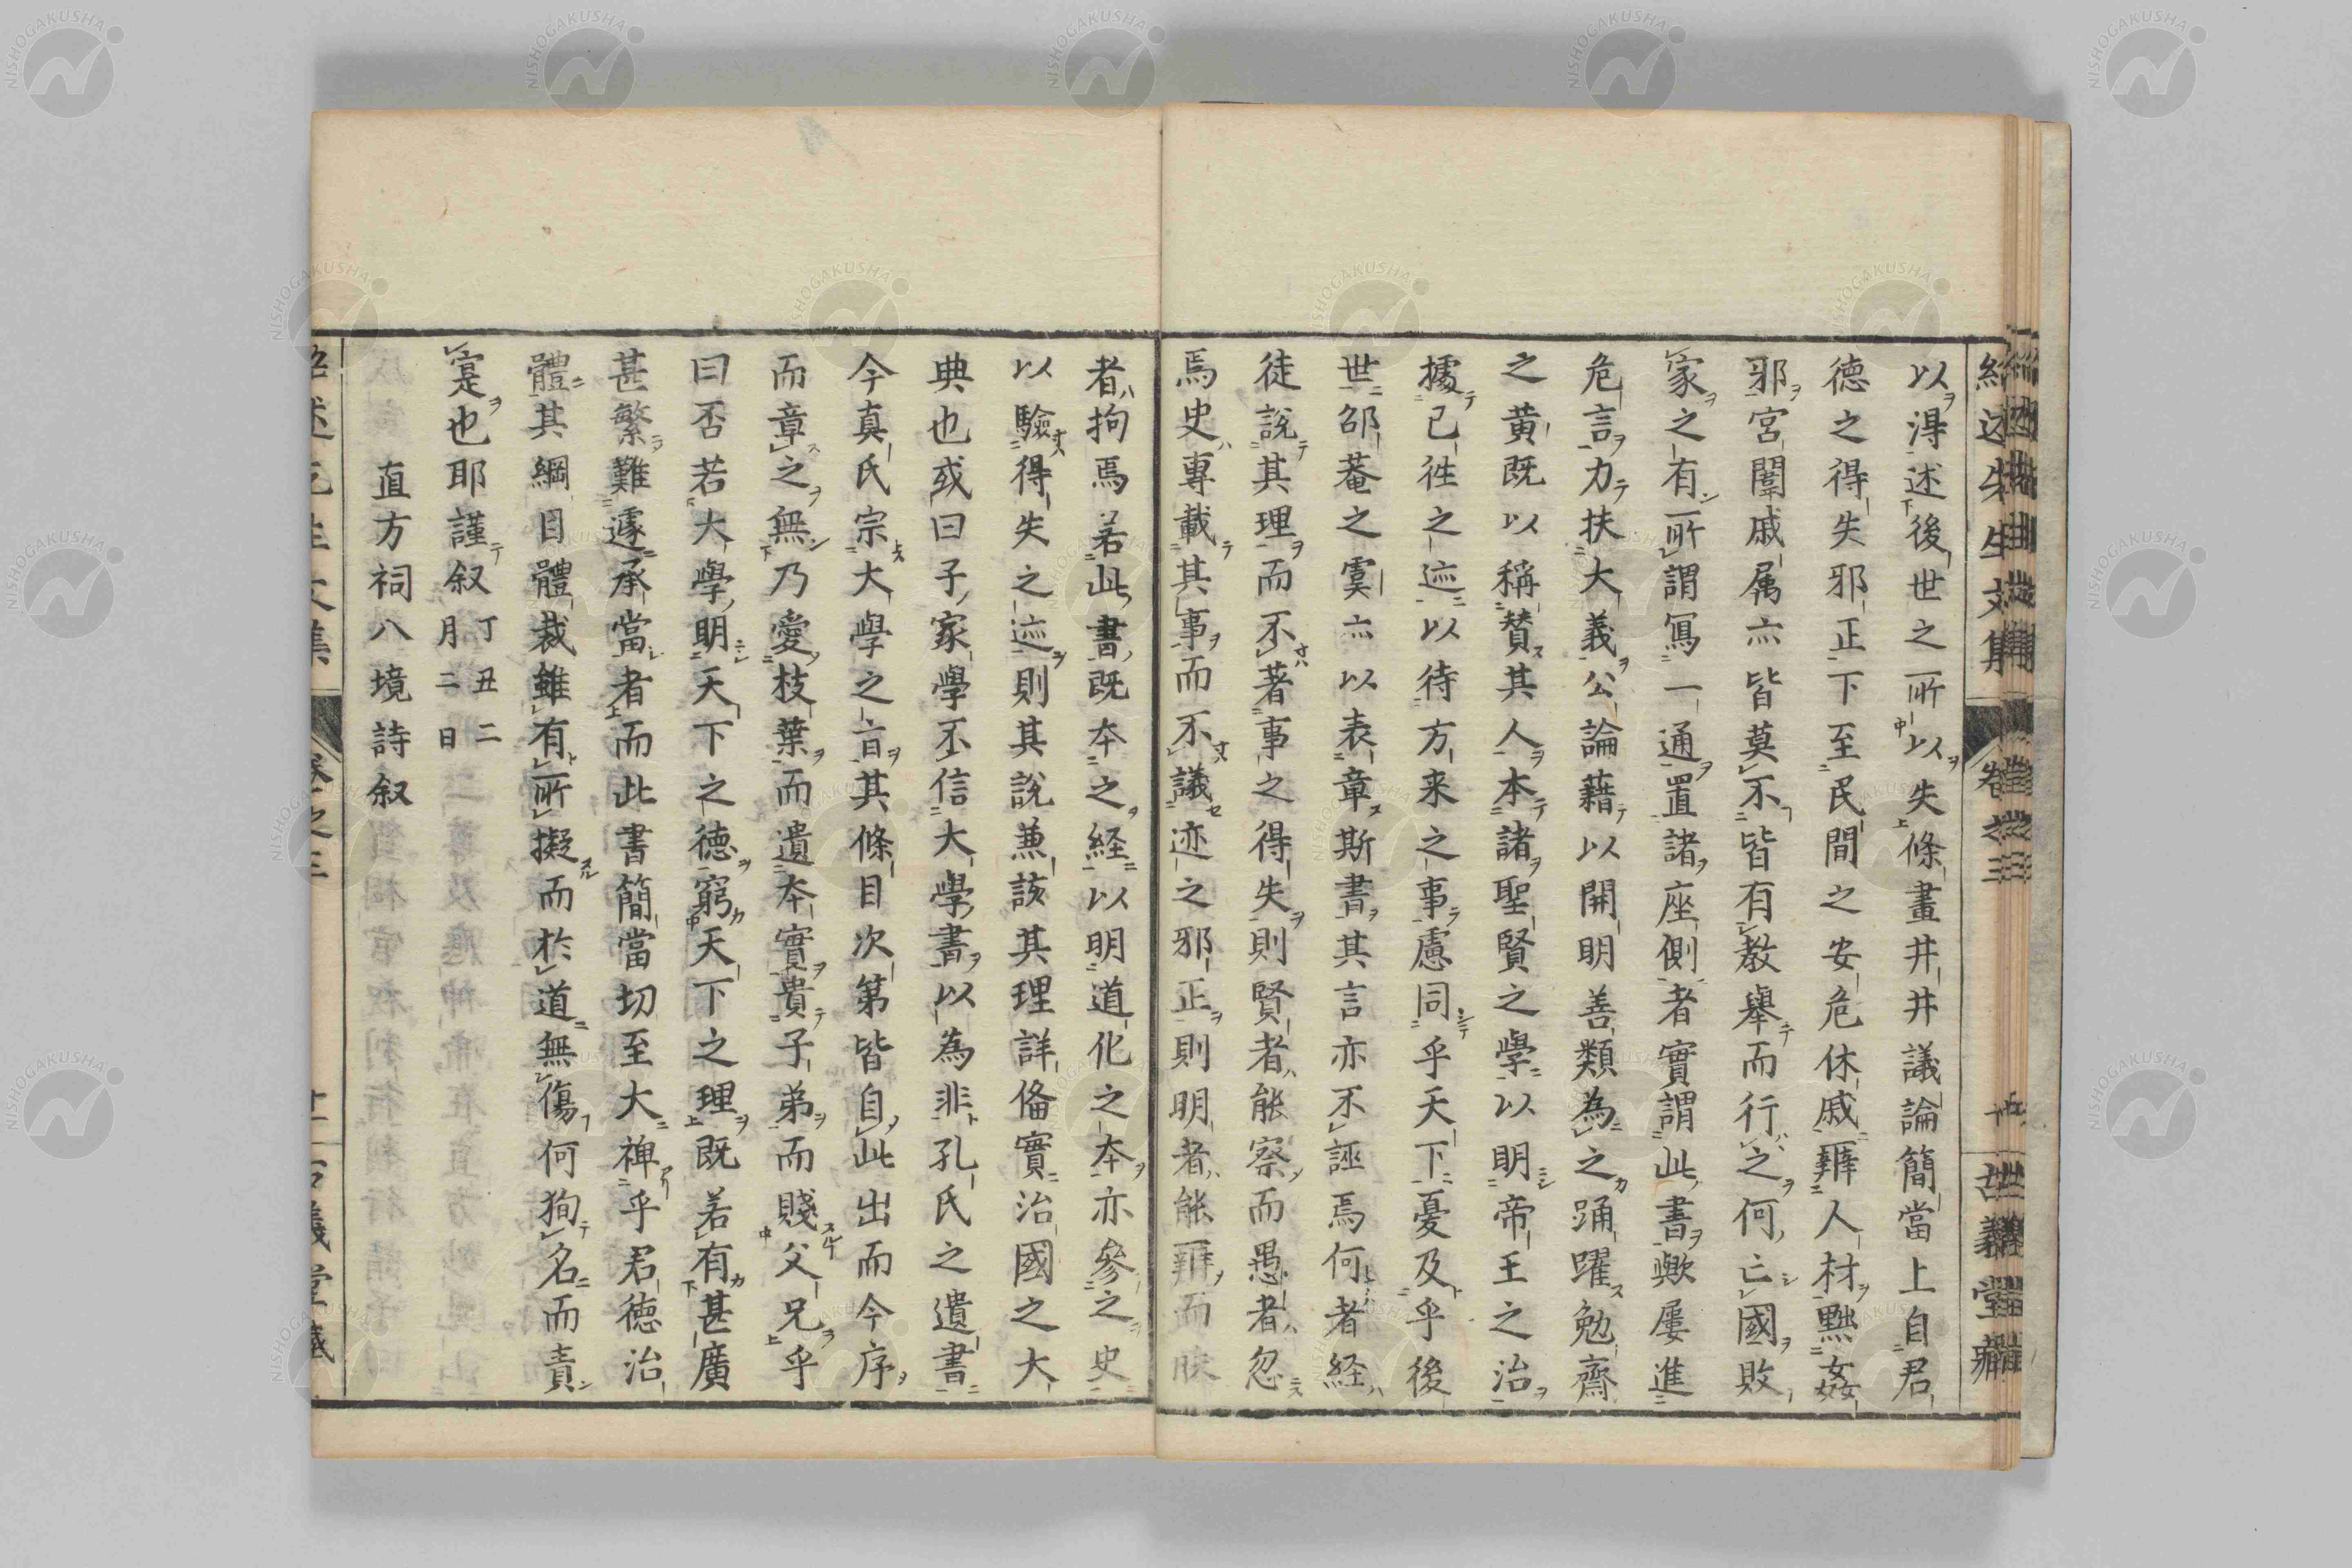 以得述後世之所以失條畫井井議論簡當上自君
德之得失邪正下至民間之安危休戚辨人材黜姦
邪宮闈戚属亦皆莫不皆有教舉而行之何亡國敗
家之有所謂寫一通置諸座側者實謂此書歟屢進
危言力扶大義公論藉以開明善類為之踊躍勉齋
之黄既以稱賛其人本諸聖賢之學以明帝王之治
據已徃之迹以待方来之事慮同乎天下憂及乎後
世邵菴之虞亦以表章斯書其言亦不誣焉何者経
徒說其理而不著事之得失則賢者能察而愚者忽
焉史專載其事而不議迹之邪正則明者能辨而昧
者拘焉若此書既本之経以明道化之本亦參之史
以驗得失之迹則其說兼該其理詳俻實治國之大
典也或曰子家學不信大學書以為非孔氏之遺書
今真氏宗大學之㫖其條目次第皆自此出而今序
而章之無乃愛枝葉而遺本實貴子弟而賤父兄乎
曰否若大學明天下之德窮天下之理既若有甚廣
甚繁難遽承當者而此書簡當切至大裨乎君德治
體其綱目體裁雖有所擬而於道無傷何狥名而責
寔也耶謹叙丁丑二月二日
直方祠八境詩叙
卷之三
古義堂藏